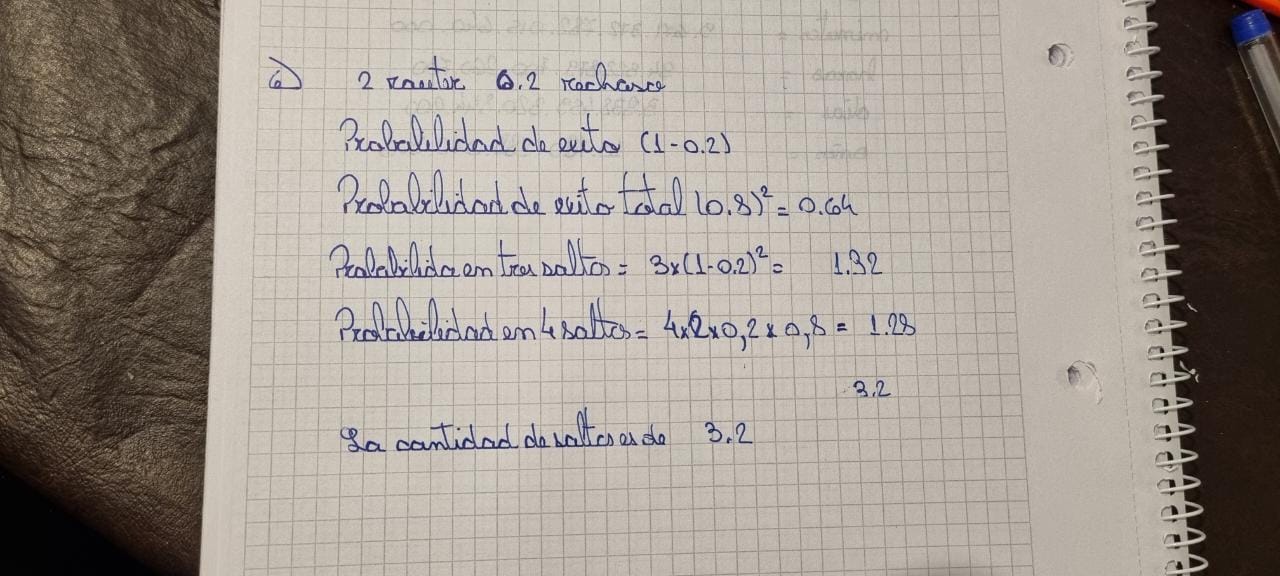 a) 2 router 0.2 rechasce
Probabilidad de exito (1-0.2)
Probabilidad de exito total (0.8)²= 0.64
Probabilida en tres saltos = 3x(1-0.2)²= 1.92
Probabilidad en 4 saltos = 4x2x0,2x0,8 = 1.28
3.2
La cantidad de saltos es de 3.2